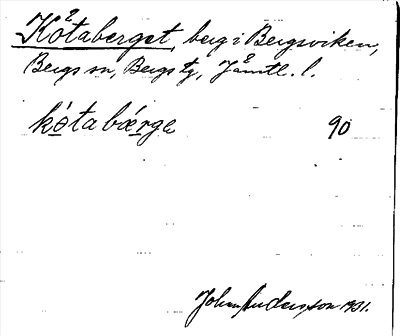 Kötaberget, berg i Bergsviken,
Bergs sn, Bergs tg, Jämtl. l.
kòta bærge 90
Johan Andersson 1931.